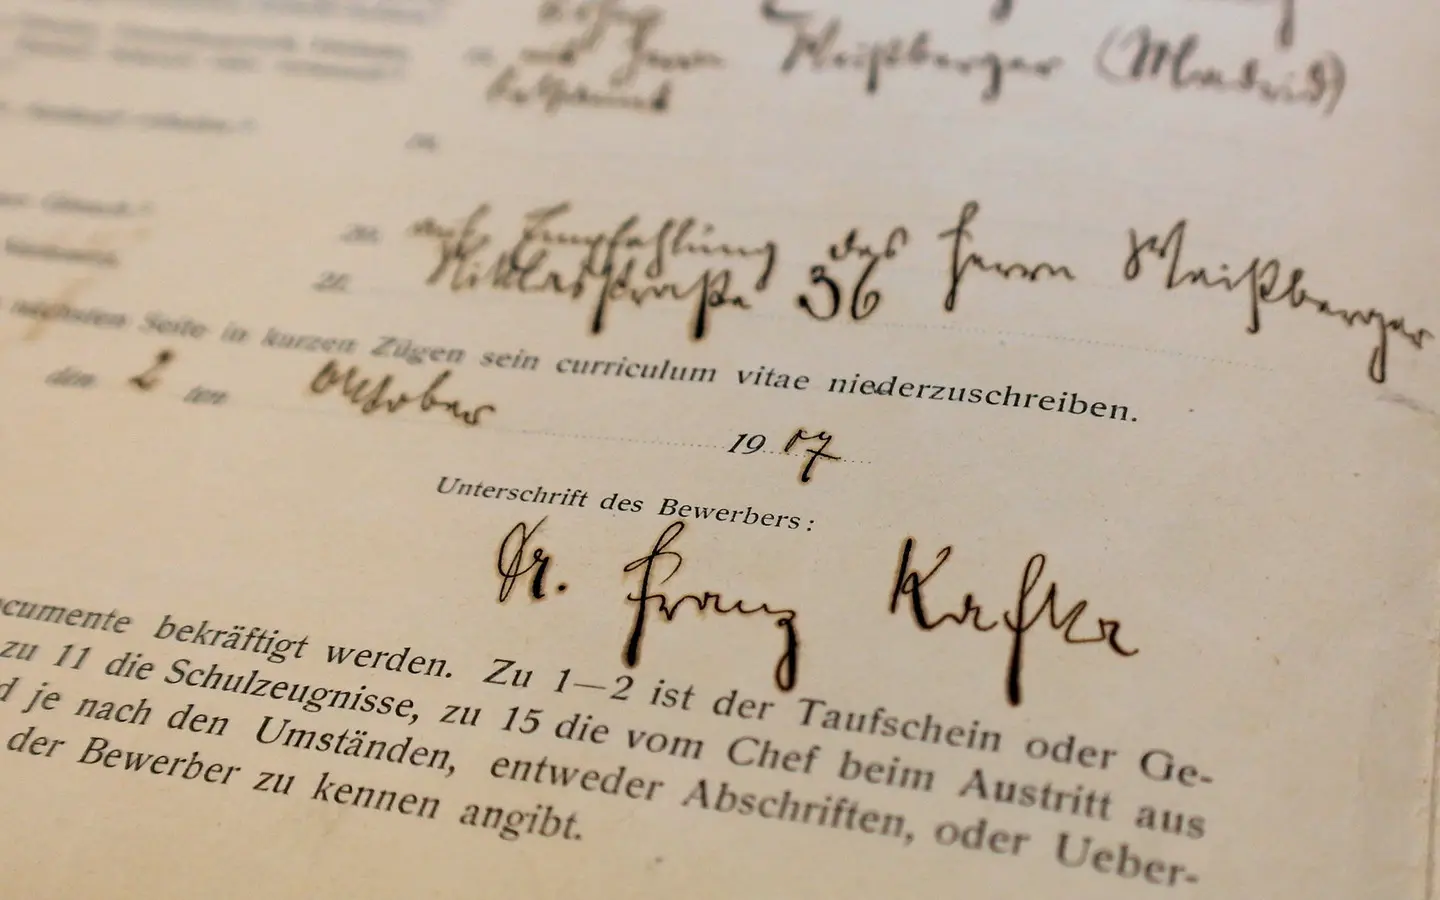 Herrn Weißberger (Madrid)
bekannt
20. auf Empfehlung des Herrn Weißberger
21. Niklasstraße 36
nächsten Seite in kurzen Zügen sein curriculum vitae niederzuschreiben.
den 2 ten Oktober 1907
Unterschrift des Bewerbers:
Dr. Franz Kafka
cumente bekräftigt werden. Zu 1—2 ist der Taufschein oder Ge-
zu 11 die Schulzeugnisse, zu 15 die vom Chef beim Austritt aus
d je nach den Umständen, entweder Abschriften, oder Ueber-
der Bewerber zu kennen angibt.